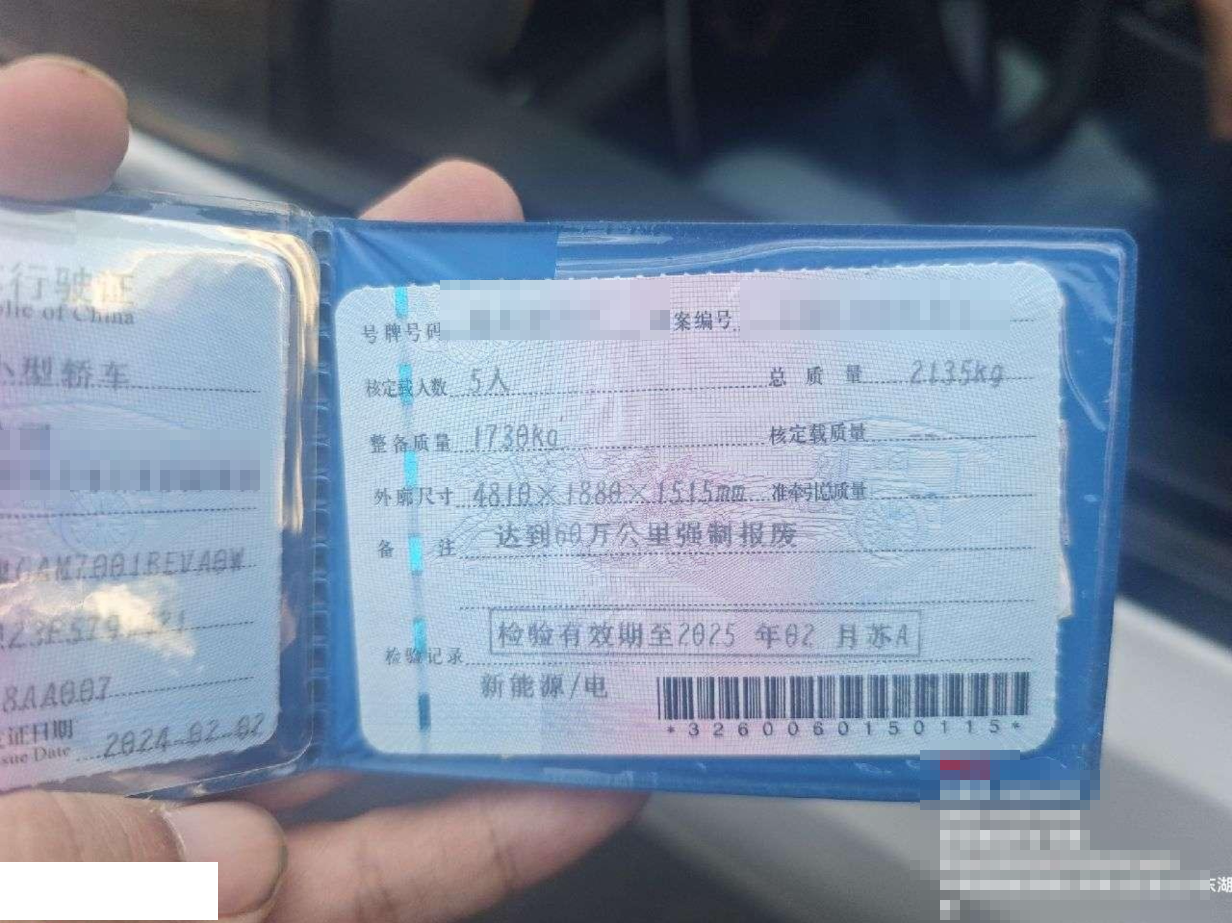 行驶证
lic of China
小型轿车
CAM7001BEVA0W
8AA007
证日期
sue Date 2024-02-02
号牌号码 案编号
核定载人数 5人 总质量 2135kg
整备质量 1730kg 核定载质量 --
外廓尺寸 4810×1880×1515mm 准牵引总质量 --
备注 达到60万公里强制报废
检验记录 检验有效期至2025 年02 月苏A
新能源/电
*3260060150115*
东湖